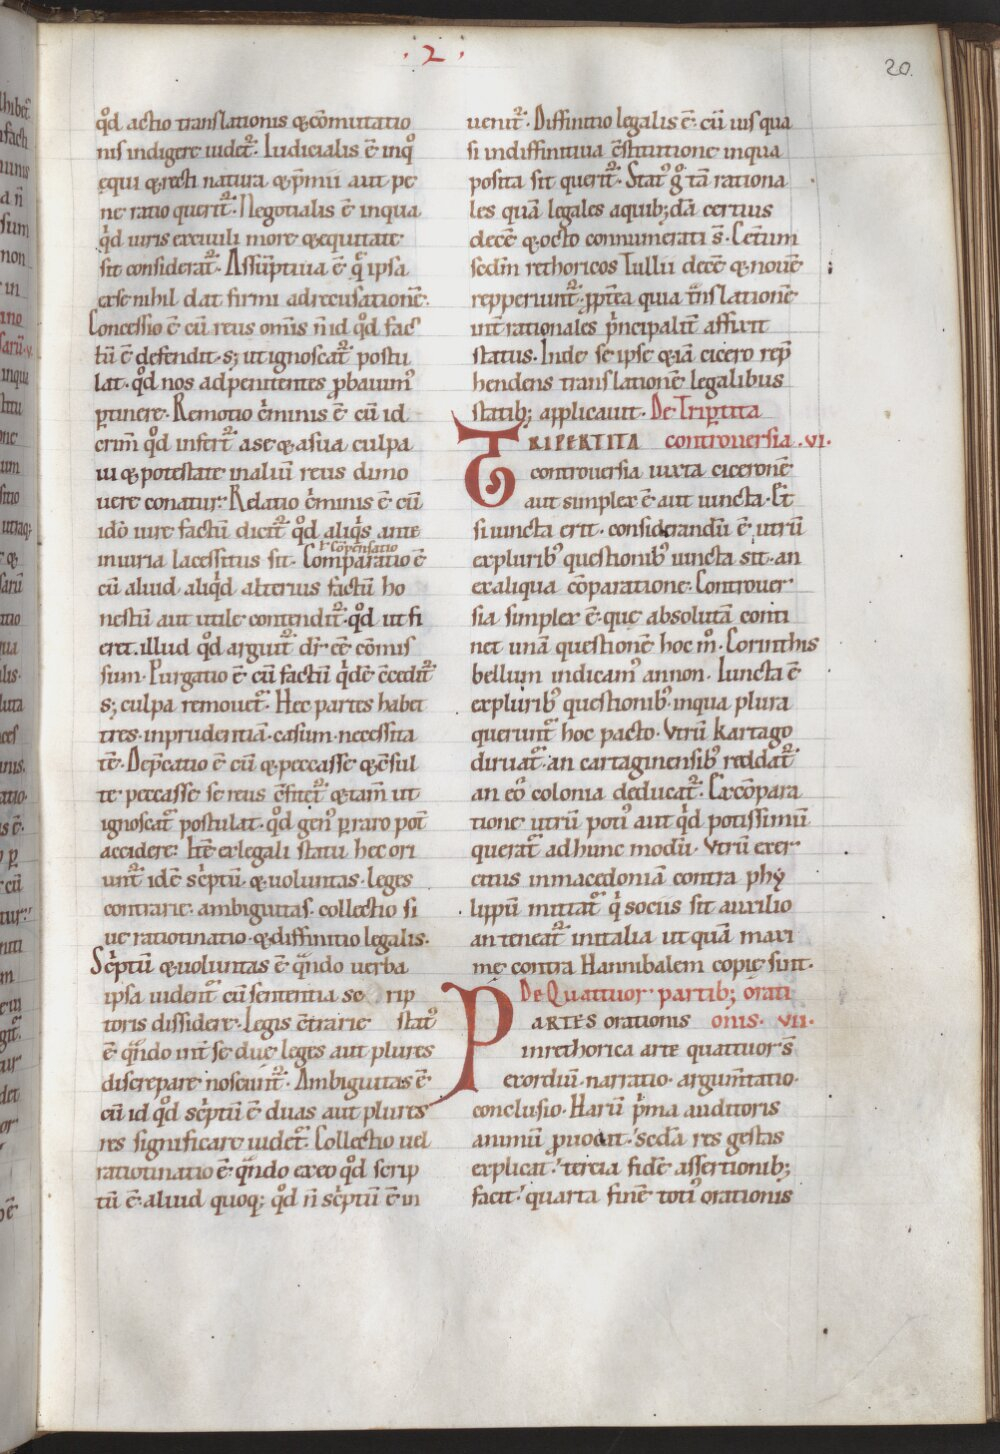 · 2 ·
20.
qͦd actio translationis ⁊cōmutatio
nis indigere uidet᷑. Iudicialis ē inqͦ
ęqui ⁊recti natura ⁊p̄mii aut pe
ne ratio querit᷑. Negotialis ē inqua
qͥd iuris exciuili more ⁊equitate
sit considerat᷑. Assūptiua ē qͤ ipsa
exse nihil dat firmi adrecusationē.
Concessio ē cū reus omīs n̄ id qͦd fac
tū ē defendit. s; ut ignoscat᷑ postu
lat. qͦd nos adpenitentes ꝓbauimꝰ
ꝑtinere. Remotio cͥminis ē cū id
crim̄ qͦd infert᷑ ase ⁊asua culpa
ui ⁊potestate inaliū reus dimo
uere conatur. Relatio cͥminis ē cū
idō iure factū dicit᷑ qͦd aliqͥs ante
l᷑ cōpensatio
iniuria lacessitus sit. Comparatio ē
cū aliud aliqͥd alterius factū ho
nestū aut utile contendit᷑. qͦd ut fi
eret. illud qͦd arguit᷑ dr̄ eē cōmis
sum. Purgatio ē cū factū qͥdē c̄cedit᷑
s; culpa remouet᷑. Hec partes habet
tres. inprudentiā. casum. necessita
tē. Dep̄catio ē cū ⁊peccasse ⁊c̄sul
te peccasse se reus c̄fitet᷑ ⁊tam̄ ut
ignoscat᷑ postulat. qͦd genꝰ ꝑraro pot̄
accidere. Itē exlegali statu hec ori
unt᷑ idē scͥptū. ⁊uoluntas. leges
contrarie. ambiguitas. collectio si
ue ratiotinatio. ⁊diffinitio legalis.
Scͥptū ⁊uoluntas ē qͣndo uerba
ipsa uident᷑ cū sententia sc rip
toris dissidere. Legis c̄trarie statꝰ
ē qͣndo int̄ se due leges aut plures
discrepare noscunt᷑. Ambiguitas ē
cū id qͦd scͥptū ē duas aut plures
res significare uidet᷑. Collectio uel
ratiotinatio ē qͣndo exeo qͦd scrip
tū ē. aliud quoq; qͦd n̄ scͥptū ē in
uenit᷑. Diffinitio legalis ē. cū uis qua
si indiffinitiua c̄stitutione inqua
posita sit querit᷑. Statꝰ gͦ tā rationa
les quā legales aquib;dā certius
decē ⁊octo connumerati s̄. Cet̄um
sedm̄ rethoricos Tullii decē ⁊nouē
repperiunt᷑. ꝓpt̄ea quia tͣnslationē
int̄ rationales pͥncipalit̄ affixit
status. Inde se ipse ⁊iā cicero rep̄
hendens translationē legalibus
statib; applicauit. De Tripꝑtita
TRIPERTITA controuersia .VI.
controuersia iuxta ciceronē
aut simplex ē aut iuncta. Et
si iuncta erit. considerandū ē utrū
expluribꝰ questionibꝰ iuncta sit. an
exaliqua cōparatione. Controuer
sia simplex ē. quę absolutā conti
net unā questionē hoc mͦ. Corinthis
bellum indicamꝰ annon. Iuncta ē
expluribꝰ questionibꝰ. inqua plura
querunt᷑ hoc pacto. Vtrū kartago
diruat᷑. an cartaginensibꝰ reddat᷑.
an eo colonia deducat᷑. Excōpara
tione utrū potiꝰ aut qͥd potissimū
querat᷑ adhunc modū. Vtrū exer
citus inmacedoniā contra phy
lippū mittat᷑ qͥ sociis sit auxilio
an teneat᷑ initalia ut quā maxi
me contra Hannibalem copię sint.
De Quattuor partib; orati
PARTES orationis onis. VII.
inrethorica arte quattuor s̄
exordiū. narratio. argum̄tatio.
conclusio. Harū pͥma auditoris
animū ꝓuocat. secd̄a res gestas
explicat. tercia fidē assertionib;
facit. quarta finē totiꝰ orationis